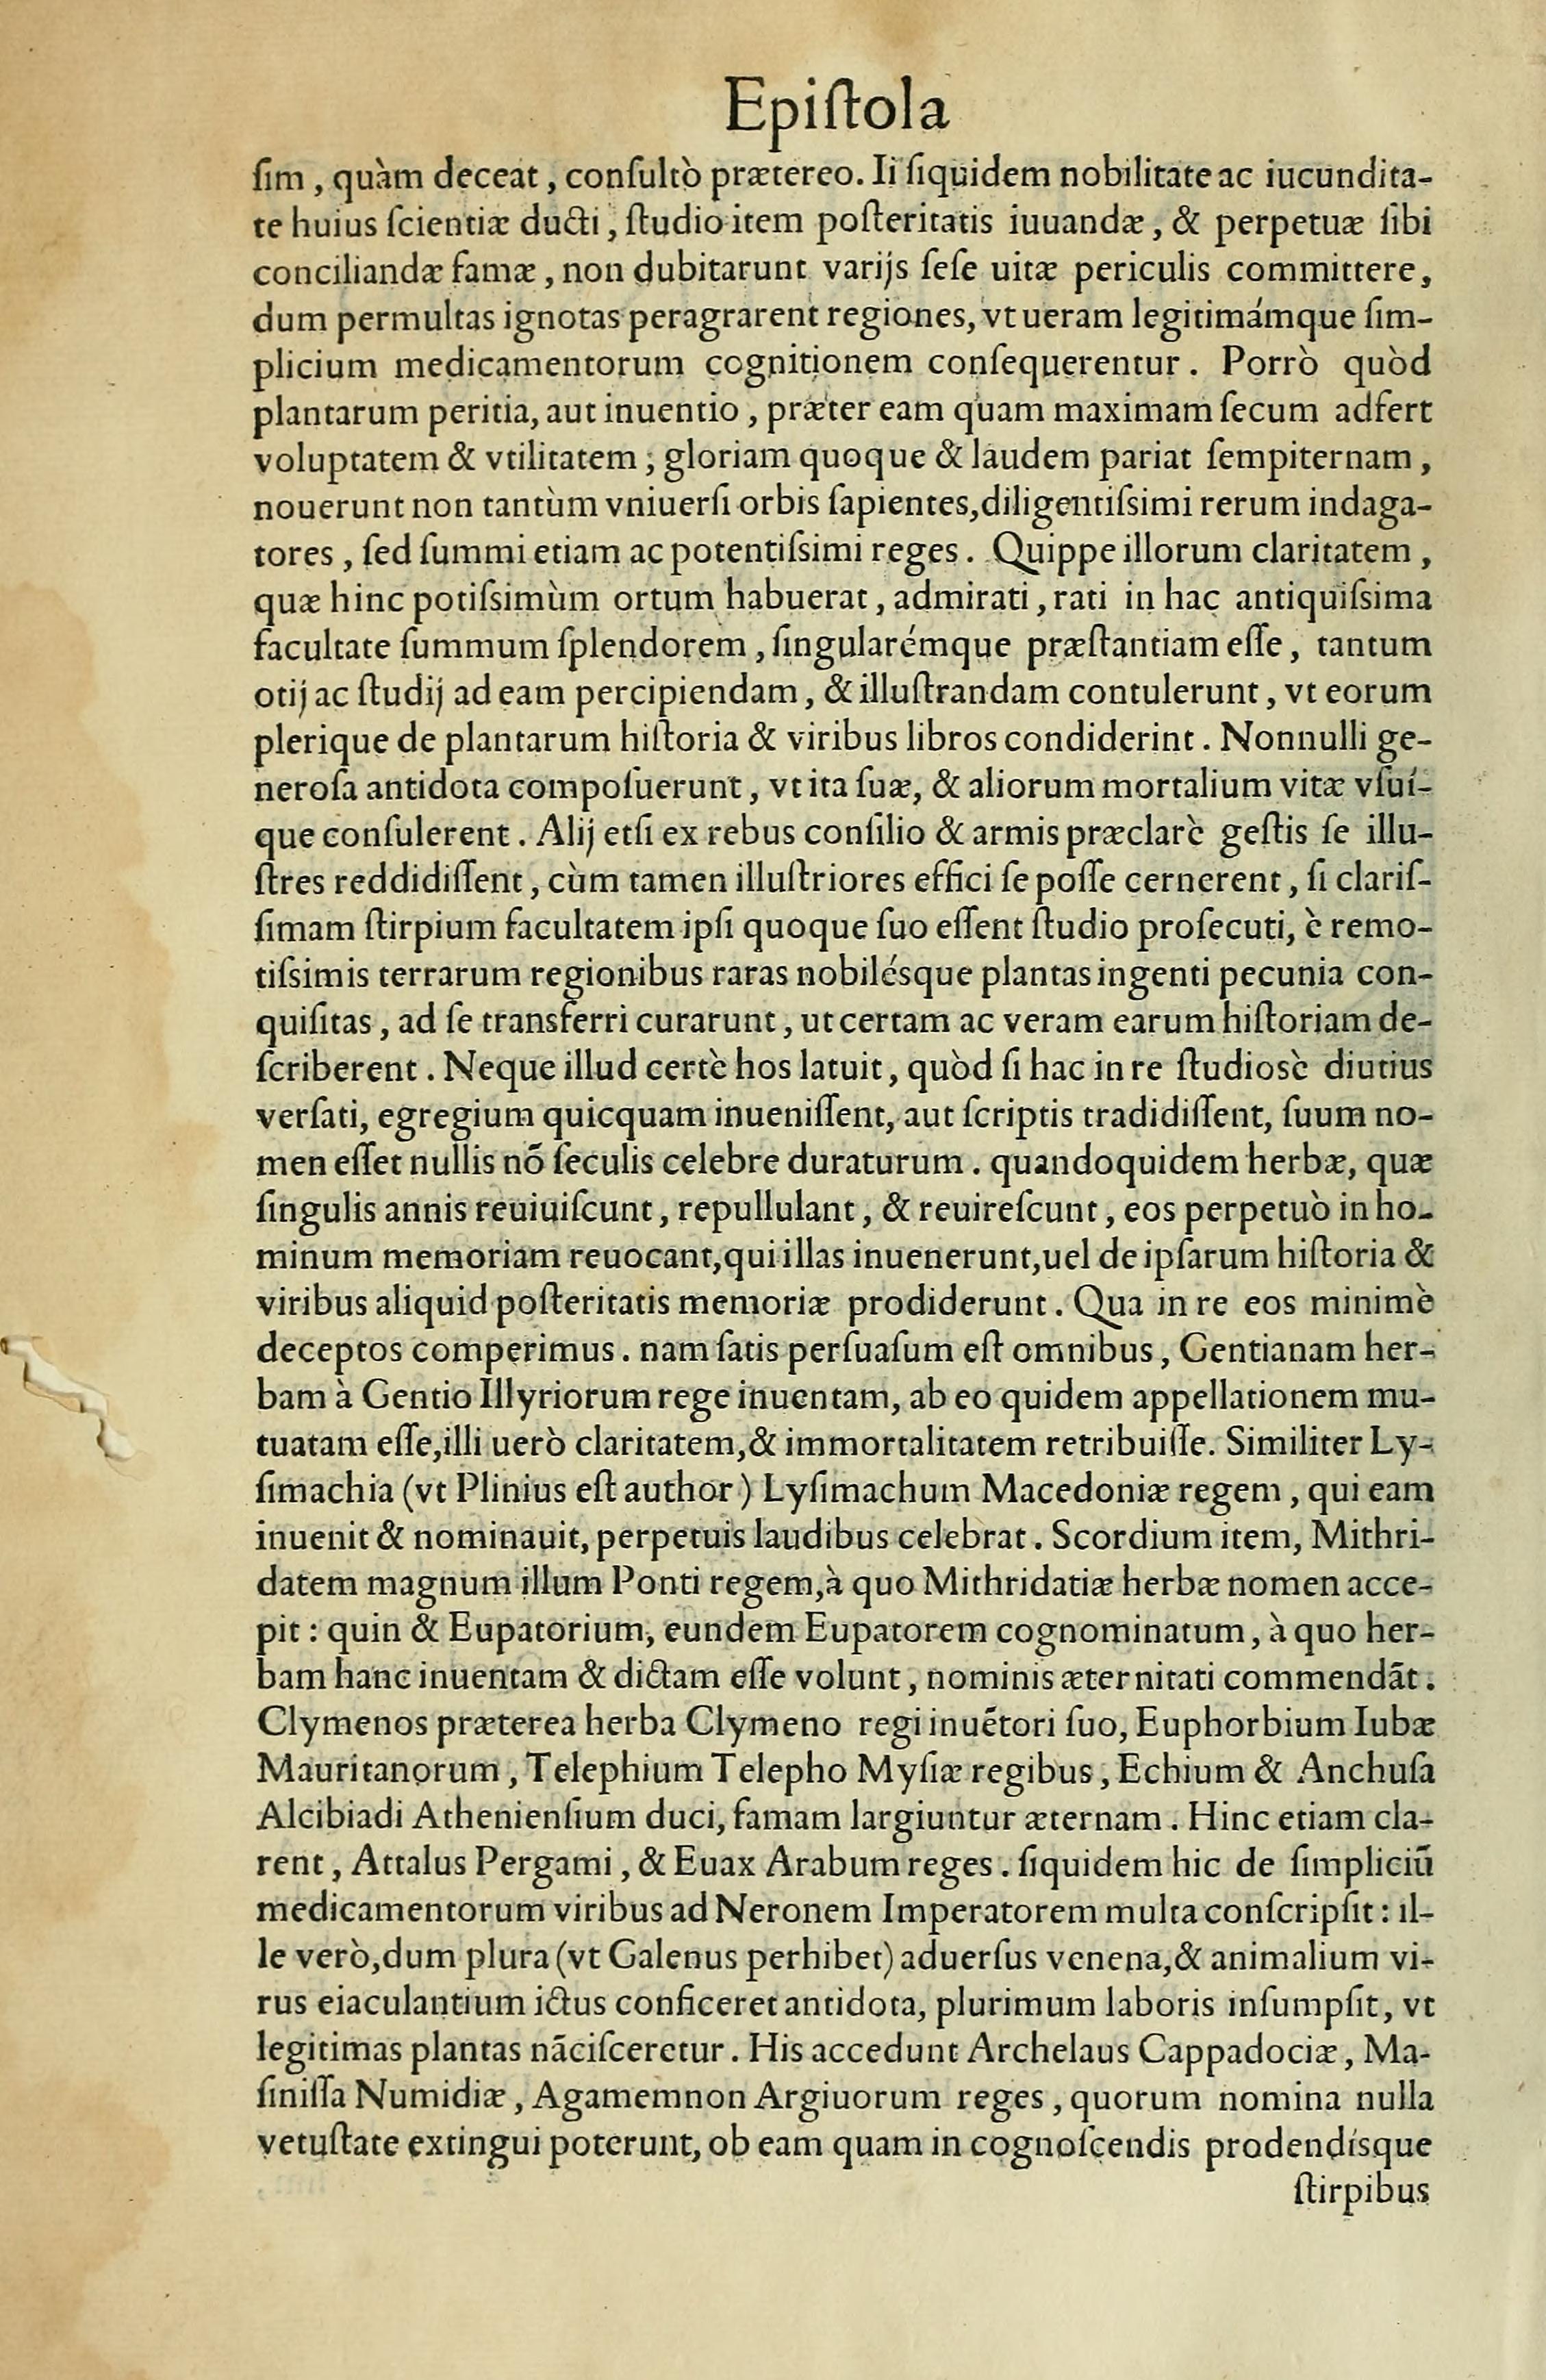 Epiſtola
ſim, quàm deceat, conſultò prætereo. Ii ſiquidem nobilitate ac iucundita-
te huius ſcientiæ ducti, ſtudio item poſteritatis iuuandæ, & perpetuæ ſibi
conciliandæ famæ, non dubitarunt varijs ſeſe uitæ periculis committere,
dum permultas ignotas peragrarent regiones, vt ueram legitimámque ſim-
plicium medicamentorum cognitionem conſequerentur. Porrò quòd
plantarum peritia, aut inuentio, præter eam quam maximam ſecum adfert
voluptatem & vtilitatem, gloriam quoque & laudem pariat ſempiternam,
nouerunt non tantùm vniuerſi orbis ſapientes, diligentiſsimi rerum indaga-
tores, ſed ſummi etiam ac potentiſsimi reges. Quippe illorum claritatem,
quæ hinc potiſsimùm ortum habuerat, admirati, rati in hac antiquiſsima
facultate ſummum ſplendorem, ſingularémque præſtantiam eſſe, tantum
otij ac ſtudij ad eam percipiendam, & illuſtrandam contulerunt, vt eorum
plerique de plantarum hiſtoria & viribus libros condiderint. Nonnulli ge-
neroſa antidota compoſuerunt, vt ita ſuæ, & aliorum mortalium vitæ vſuí-
que conſulerent. Alij etſi ex rebus conſilio & armis præclarè geſtis ſe illu-
ſtres reddidiſſent, cùm tamen illuſtriores effici ſe poſſe cernerent, ſi clariſ-
ſimam ſtirpium facultatem ipſi quoque ſuo eſſent ſtudio proſecuti, è remo-
tiſsimis terrarum regionibus raras nobilésque plantas ingenti pecunia con-
quiſitas, ad ſe transferri curarunt, ut certam ac veram earum hiſtoriam de-
ſcriberent. Neque illud certè hos latuit, quòd ſi hac in re ſtudiosè diutius
verſati, egregium quicquam inueniſſent, aut ſcriptis tradidiſſent, ſuum no-
men eſſet nullis nõ ſeculis celebre duraturum. quandoquidem herbæ, quæ
ſingulis annis reuiuiſcunt, repullulant, & reuireſcunt, eos perpetuò in ho-
minum memoriam reuocant, qui illas inuenerunt, uel de ipſarum hiſtoria &
viribus aliquid poſteritatis memoriæ prodiderunt. Qua in re eos minimè
deceptos comperimus. nam ſatis perſuaſum eſt omnibus, Gentianam her-
bam à Gentio Illyriorum rege inuentam, ab eo quidem appellationem mu-
tuatam eſſe, illi uerò claritatem, & immortalitatem retribuiſſe. Similiter Ly-
ſimachia (vt Plinius eſt author) Lyſimachum Macedoniæ regem, qui eam
inuenit & nominauit, perpetuis laudibus celebrat. Scordium item, Mithri-
datem magnum illum Ponti regem, à quo Mithridatiæ herbæ nomen acce-
pit: quin & Eupatorium, eundem Eupatorem cognominatum, à quo her-
bam hanc inuentam & dictam eſſe volunt, nominis æternitati commendãt.
Clymenos præterea herba Clymeno regi inuẽtori ſuo, Euphorbium Iubæ
Mauritanorum, Telephium Telepho Myſiæ regibus, Echium & Anchuſa
Alcibiadi Athenienſium duci, famam largiuntur æternam. Hinc etiam cla-
rent, Attalus Pergami, & Euax Arabum reges. ſiquidem hic de ſimpliciũ
medicamentorum viribus ad Neronem Imperatorem multa conſcripſit: il-
le verò, dum plura (vt Galenus perhibet) aduerſus venena, & animalium vi-
rus eiaculantium ictus conficeret antidota, plurimum laboris inſumpſit, vt
legitimas plantas nãciſceretur. His accedunt Archelaus Cappadociæ, Ma-
ſiniſſa Numidiæ, Agamemnon Argiuorum reges, quorum nomina nulla
vetuſtate extingui poterunt, ob eam quam in cognoſcendis prodendísque
ſtirpibus